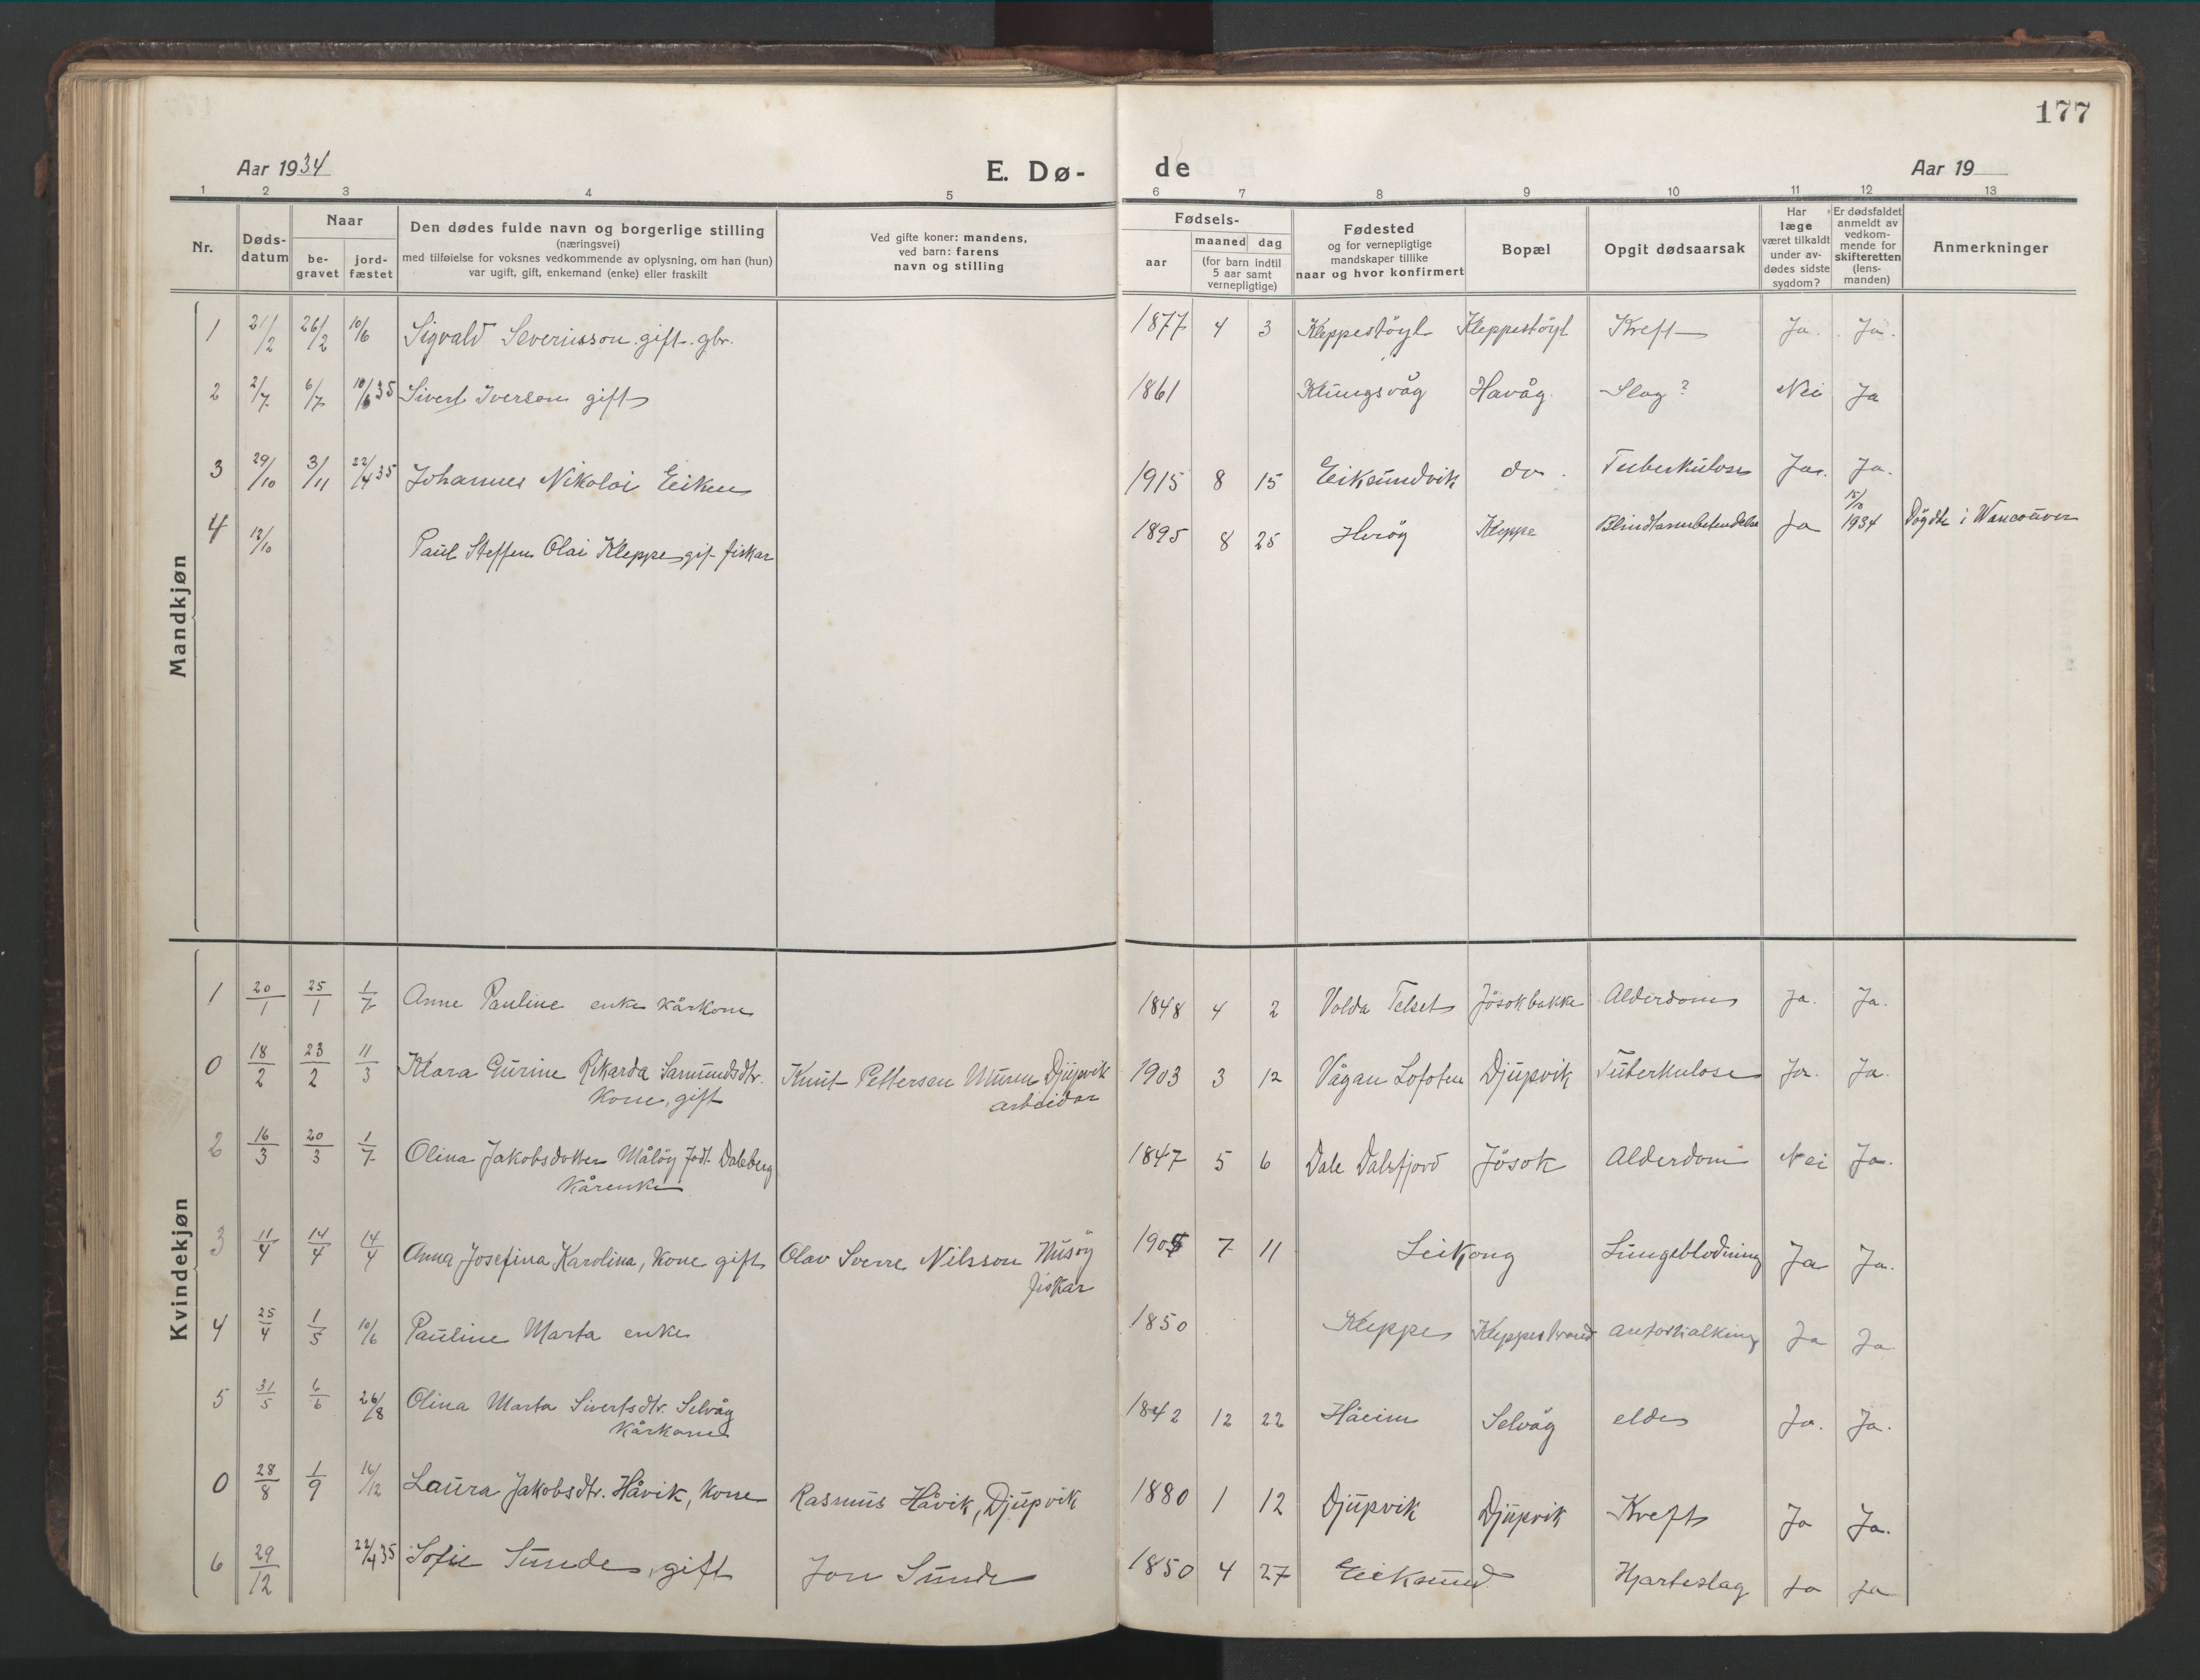 177
Aar 1934 E. Dø- de Aar 19
1 2 3 4 5 6 7 8 9 10 11 12 13
Nr.
Døds-
datum
Naar
be-
gravet
jord-
fæstet
Den dødes fulde navn og borgerlige stilling
(næringsvei)
med tilføielse for voksnes vedkommende av oplysning, om han (hun)
var ugift, gift, enkemand (enke) eller fraskilt
Ved gifte koner: mandens,
ved barn: farens
navn og stilling
Fødsels-
aar
maaned dag
(for barn indtil
5 aar samt
vernepligtige)
Fødested
og for vernepligtige
mandskaper tillike
naar og hvor konfirmert
Bopæl
Opgit dødsaarsak
Har
læge
været tilkaldt
under av-
dødes sidste
sygdom?
Er dødsfaldet
anmeldt av
vedkom-
mende for
skifteretten
(lens-
manden)
Anmerkninger
Mandkjøn
1 21/2 26/2 10/6 Sigvald Severinsson gift. gbr. 1877 4 3 Kleppestøyl Kleppestøyl Kreft Ja. Ja.
2 2/7 6/7 10/6 35 Sivert Iverson gift 1861 Klungsvåg Havåg Slag? Nei Ja
3 29/10 3/11 22/4 35 Johannes Nikolai Eiken 1915 8 15 Eiksundvik do. Tuberkulose Ja. Ja.
15/10
4 12/10 Paul Steffen Olai Kleppe gift fiskar 1895 8 25 Kleppe Blindtarmbetendelse Ja 1934 Døgdte i Wancouver
Kvindekjøn
1 20/1 25/1 1/7 Anne Pauline enke kårkone 1848 4 2 Volda Telset Jøsokbakke Alderdom Ja. Ja.
0 18/2 23/2 11/3 Klara Gurine Rikarda Samundsdtr. Knut Pettersen Muren Djupvik 1903 3 12 Vågan Lofoten Djupvik Tuberkulose Ja. Ja.
Kone, gift arbeidar
2 16/3 20/3 1/7 Olina Jakobsdotter Måløy født Daleberg 1847 5 6 Dale Dalsfjord Jøsok Alderdom Nei Ja.
Kårenke
3 11/4 14/4 14/4 Anna Josefina Karolina, Kone gift Olav Sverre Nilsson Husøy 1905 7 11 Leikong Lungeblødning Ja Ja.
fiskar
4 25/4 1/5 10/6 Pauline Marta enke 1850 Kleppe Kleppestrand Ja Ja
5 31/5 6/6 26/8 Olina Marta Sivertsdtr. Selvåg 1842 12 22 Håeim Selvåg elde Ja. Ja.
Kårkone
0 28/8 1/9 16/12 Laura Jakobsdtr. Håvik, Kone Rasmus Håvik, Djupvik 1880 1 12 Djupvik Djupvik Kreft Ja Ja.
6 29/12 22/4 35 Sofie Sunde, gift Jon Sunde 1850 4 27 Eiksund Hjarteslag Ja Ja